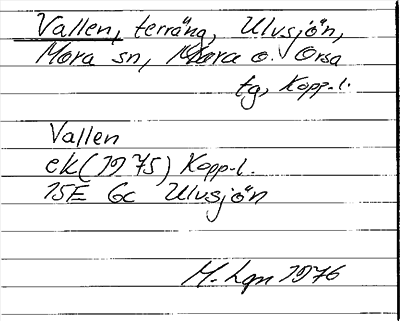 Vallen, terräng, Ulvsjön,
Mora sn, Mora o. Orsa
tg, Kopp.l.
Vallen
ek (1975) Kopp.l.
15E 6c Ulvsjön
M. Lgn 1976